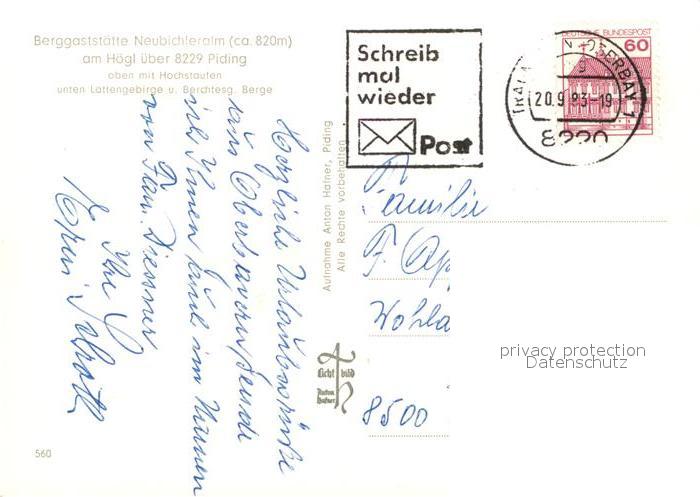 Berggaststätte Neubichleralm (ca. 820m)
am Högl über 8229 Piding
oben mit Hochstaufen
unten Lattengebirge u. Berchtesg. Berge
Herzliche Urlaubsgrüße
aus Oberbayern sende
ich Ihnen auch im Namen
von Frau
Ihr
560
Aufnahme Anton Hafner, Piding
Alle Rechte vorbehalten
Licht bild
Anton
Hafner
Schreib
mal
wieder
Post
20.9.83-19
8220
DEUTSCHE BUNDESPOST
60
Familie
F. Ap
Wohla
8500
privacy protection
Datenschutz